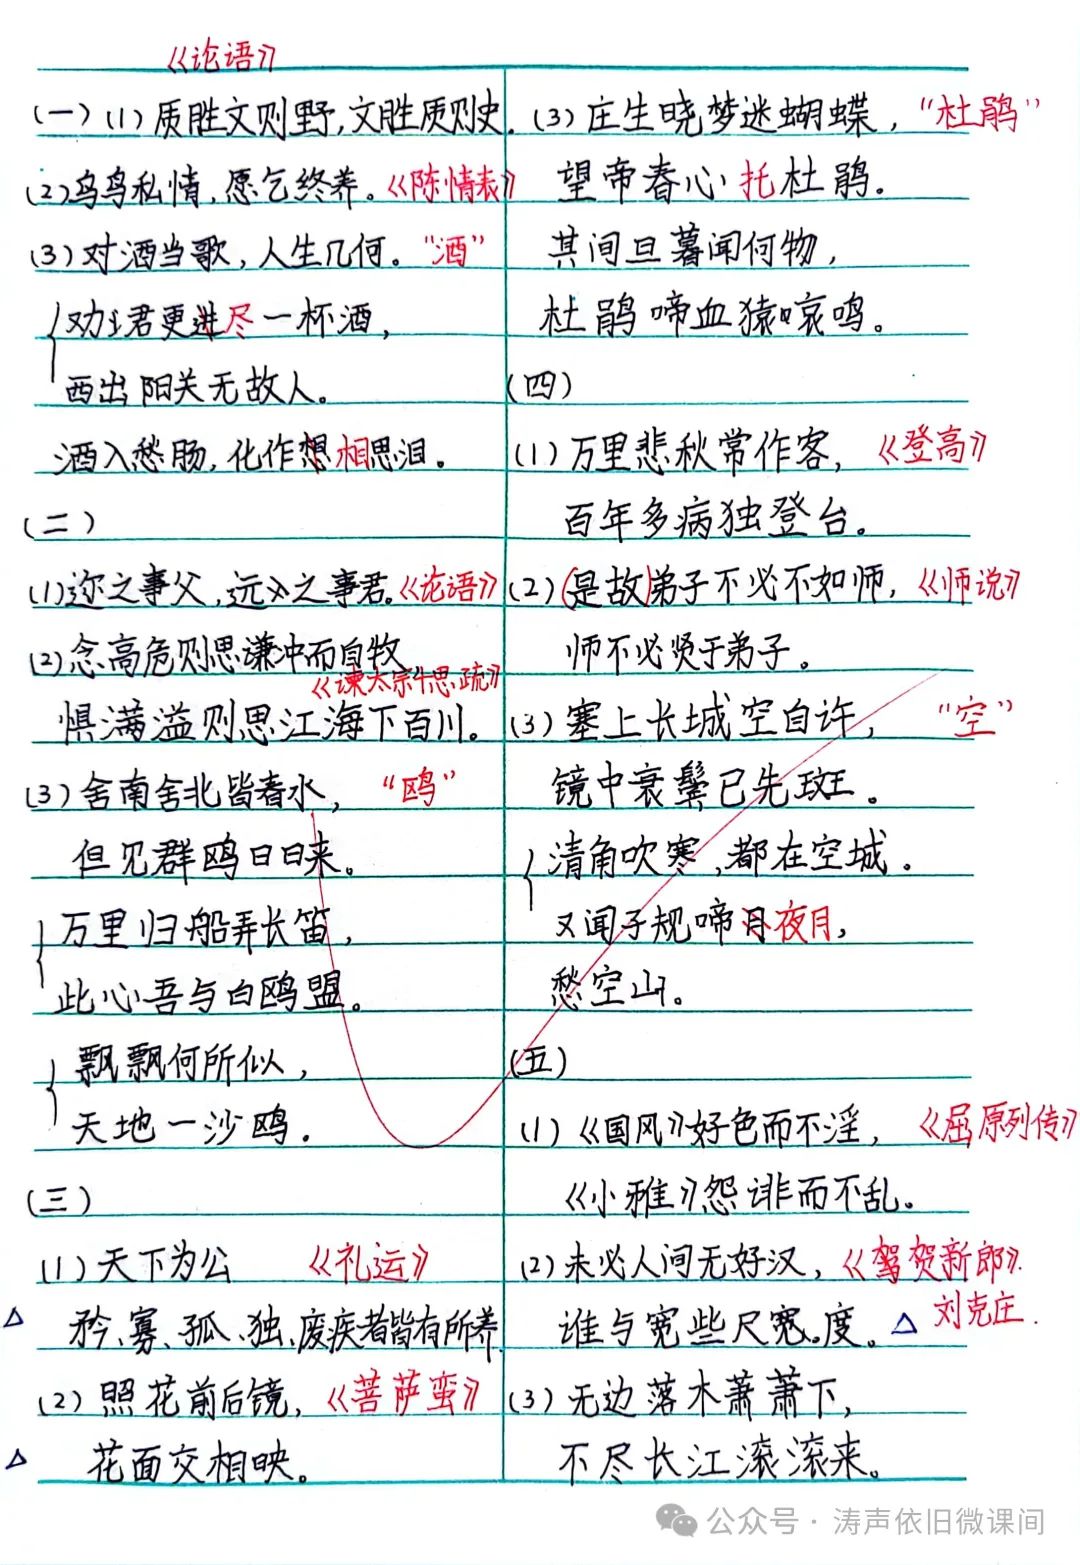 《论语》
(一)(1)质胜文则野,文胜质则史.
(2)乌鸟私情,愿乞终养。《陈情表》
(3)对酒当歌,人生几何。"酒"
劝君更进尽一杯酒,
西出阳关无故人。
酒入愁肠,化作想相思泪。
(二)
(1)迩之事父,远之事君。《论语》
(2)念高危则思谦冲而自牧
《谏太宗十思疏》
惧满溢则思江海下百川。
(3)舍南舍北皆春水,"鸥"
但见群鸥日日来。
万里归船弄长笛,
此心吾与白鸥盟。
飘飘何所似,
天地一沙鸥.
(三)
(1)天下为公《礼运》
△矜、寡、孤、独、废疾者皆有所养.
(2)照花前后镜,《菩萨蛮》
△花面交相映。
(3)庄生晓梦迷蝴蝶,"杜鹃"
望帝春心托杜鹃.
其间旦暮闻何物,
杜鹃啼血猿哀鸣。
(四)
(1)万里悲秋常作客,《登高》
百年多病独登台。
(2)(是故)弟子不必不如师,《师说》
师不必贤于弟子。
(3)塞上长城空自许,"空"
镜中衰鬓已先斑。
清角吹寒,都在空城.
又闻子规啼夜月,
愁空山。
(五)
(1)《国风》好色而不淫,《屈原列传》
《小雅》怨诽而不乱。
(2)未必人间无好汉,《贺新郎》.
谁与宽些尺度。△刘克庄.
(3)无边落木萧萧下,
不尽长江滚滚来。
公众号·涛声依旧微课间